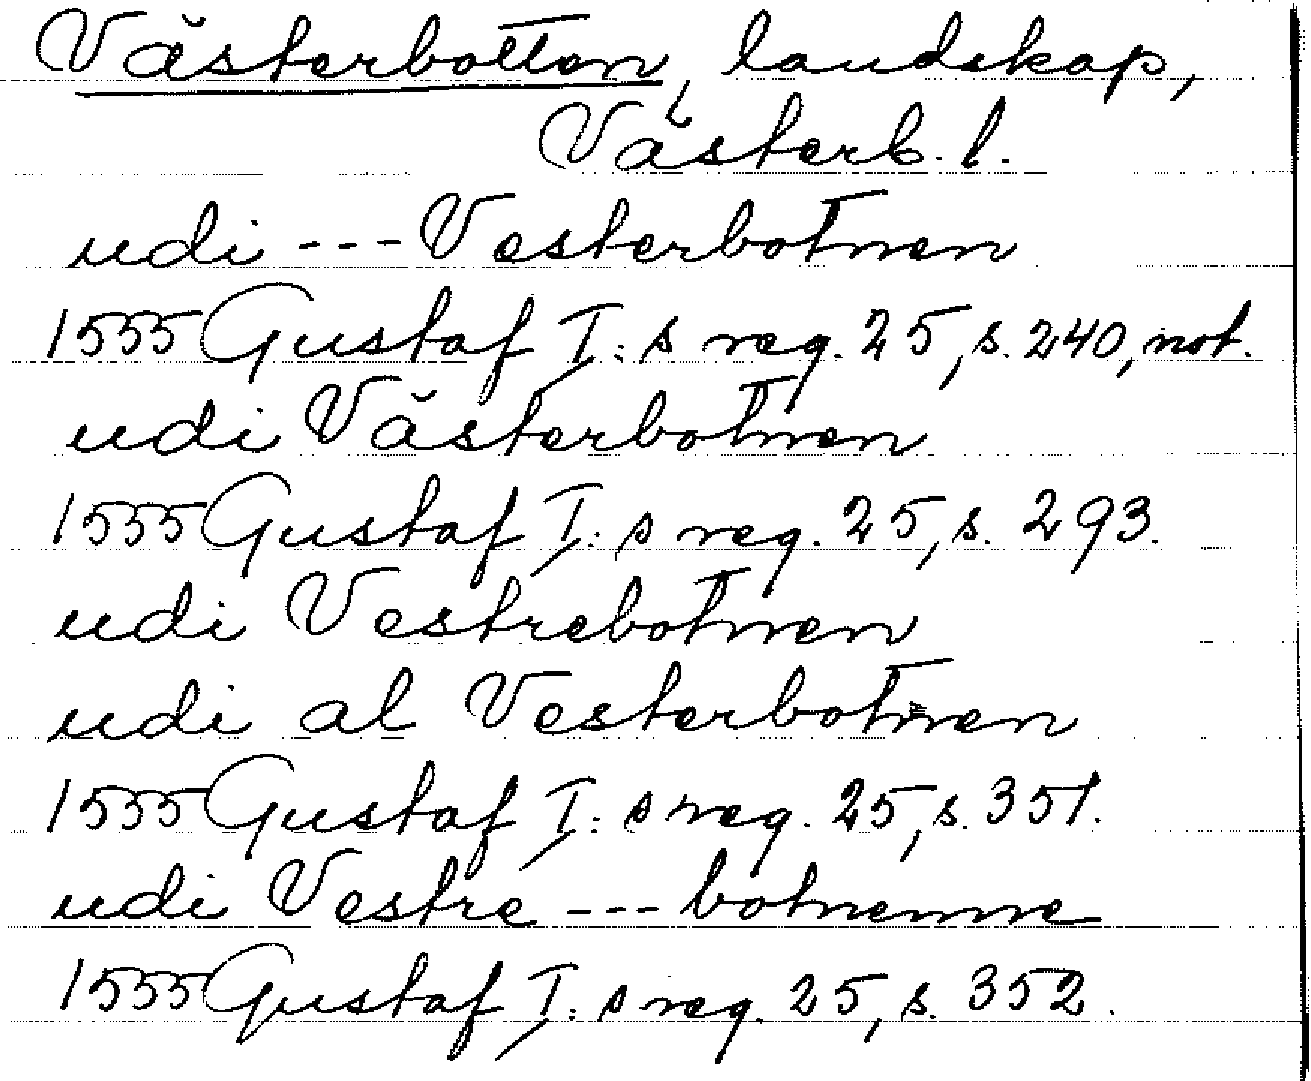 Västerbotten, landskap,
Västerb. l.
udi --- Vesterbotnen
1555 Gustaf I:s reg. 25, s. 240, not.
udi Västerbotnen
1555 Gustaf I:s reg. 25, s. 293.
udi Vestrebotnen
udi al Vesterbotnen
1555 Gustaf I:s reg. 25, s. 351.
udi Vestre --- botnenne
1555 Gustaf I:s reg. 25, s. 352.